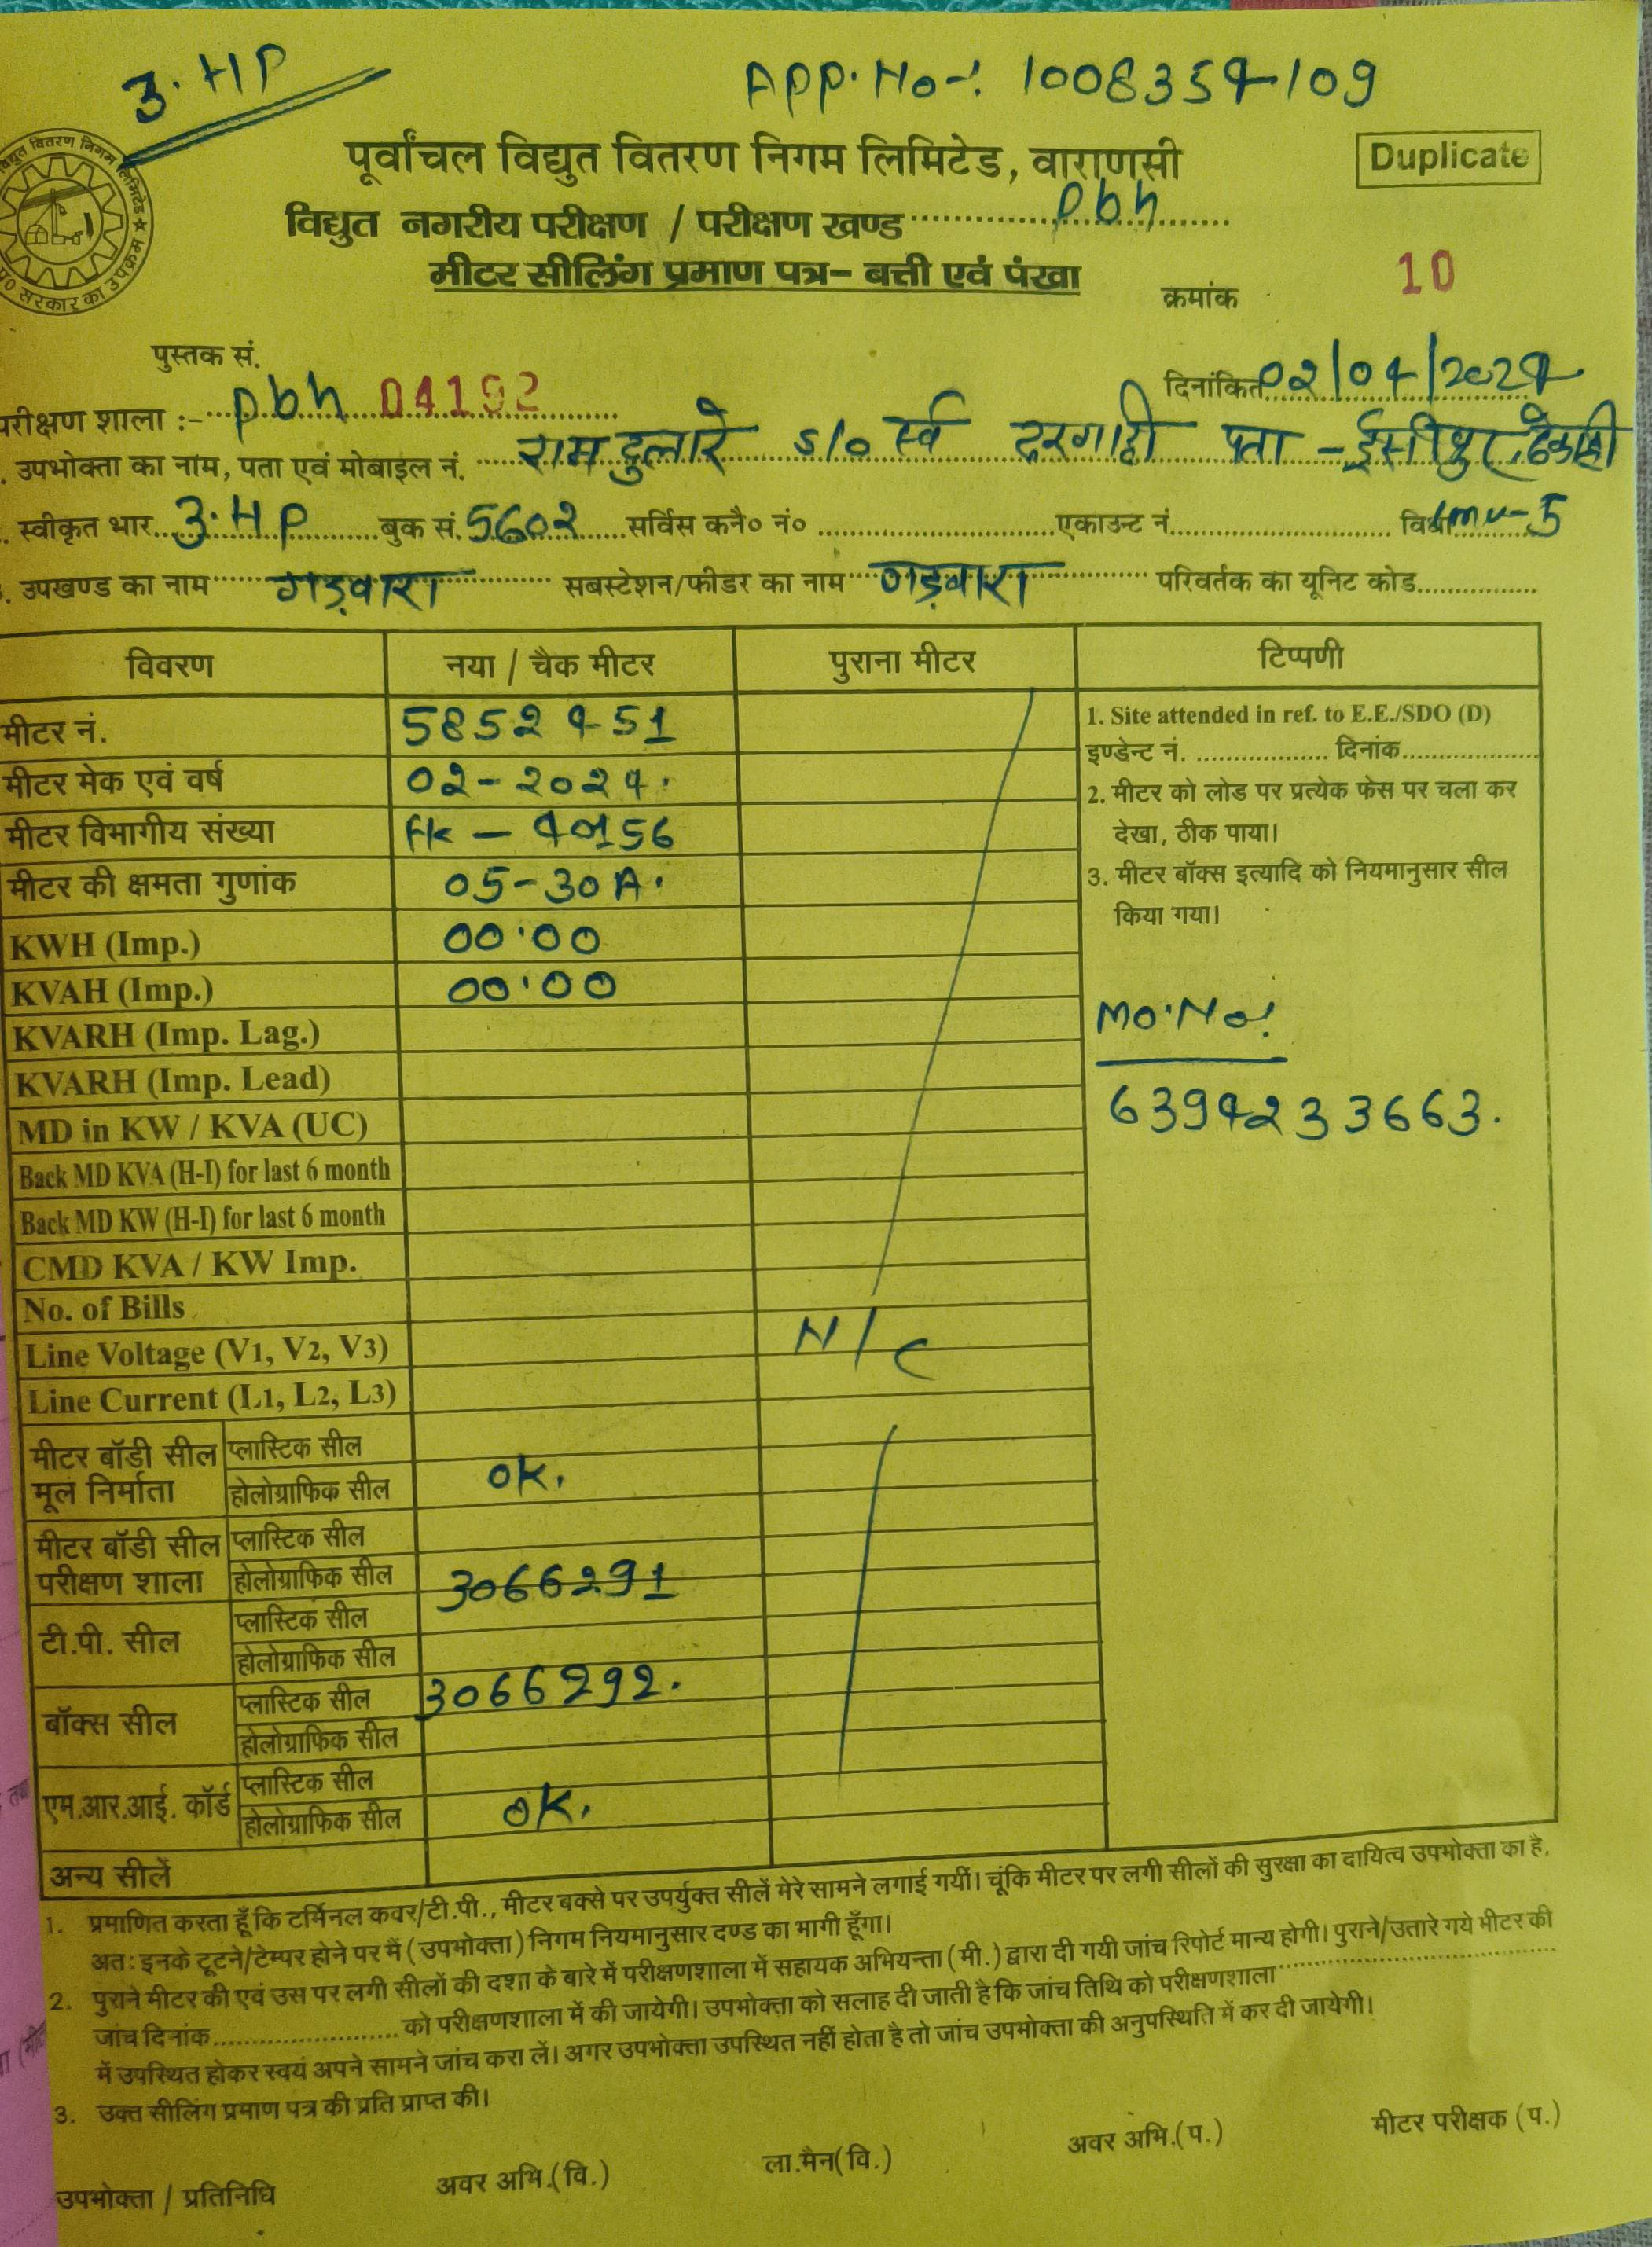 3. HP
APP. No-: 1008354109
पूर्वांचल विद्युत वितरण निगम लिमिटेड, वाराणसी
Duplicate
विद्युत नगरीय परीक्षण / परीक्षण खण्ड Pbh
मीटर सीलिंग प्रमाण पत्र– बत्ती एवं पंखा
क्रमांक 10
पुस्तक सं.
दिनांकित 02/04/2024
परीक्षण शाला :- Pbh 04192
उपभोक्ता का नाम, पता एवं मोबाइल नं. राम दुलारे S/o स्व दरगाही पता -
स्वीकृत भार 3. HP बुक सं. 5602 सर्विस कनै० नं० एकाउन्ट नं. विधा lmv-5
उपखण्ड का नाम गड़वारा सबस्टेशन/फीडर का नाम गड़वारा परिवर्तक का यूनिट कोड
विवरण नया / चैक मीटर पुराना मीटर टिप्पणी
मीटर नं. 5852451
मीटर मेक एवं वर्ष 02-2024.
मीटर विभागीय संख्या
मीटर की क्षमता गुणांक 05-30A.
KWH (Imp.) 00.00
KVAH (Imp.) 00.00
KVARH (Imp. Lag.)
KVARH (Imp. Lead)
MD in KW / KVA (UC)
Back MD KVA (H-I) for last 6 month
Back MD KW (H-I) for last 6 month
CMD KVA / KW Imp.
No. of Bills
Line Voltage (V1, V2, V3)
N/C
Line Current (L1, L2, L3)
1. Site attended in ref. to E.E./SDO (D)
इण्डेन्ट नं. दिनांक
2. मीटर को लोड पर प्रत्येक फेस पर चला कर
देखा, ठीक पाया।
3. मीटर बॉक्स इत्यादि को नियमानुसार सील
किया गया।
Mo. No:
6394233663.
मीटर बॉडी सील प्लास्टिक सील
मूल निर्माता होलोग्राफिक सील OK.
मीटर बॉडी सील प्लास्टिक सील
परीक्षण शाला होलोग्राफिक सील 3066291
टी.पी. सील प्लास्टिक सील
होलोग्राफिक सील
बॉक्स सील प्लास्टिक सील 3066292.
होलोग्राफिक सील
एम.आर.आई. कॉर्ड प्लास्टिक सील
होलोग्राफिक सील OK.
अन्य सीलें
1. प्रमाणित करता हूँ कि टर्मिनल कवर/टी.पी., मीटर बक्से पर उपर्युक्त सीलें मेरे सामने लगाई गयीं। चूंकि मीटर पर लगी सीलों की सुरक्षा का दायित्व उपभोक्ता का है,
अत: इनके टूटने/टेम्पर होने पर मैं (उपभोक्ता) निगम नियमानुसार दण्ड का भागी हूँगा।
2. पुराने मीटर की एवं उस पर लगी सीलों की दशा के बारे में परीक्षणशाला में सहायक अभियन्ता (मी.) द्वारा दी गयी जांच रिपोर्ट मान्य होगी। पुराने/उतारे गये मीटर की
जांच दिनांक को परीक्षणशाला में की जायेगी। उपभोक्ता को सलाह दी जाती है कि जांच तिथि को परीक्षणशाला
में उपस्थित होकर स्वयं अपने सामने जांच करा लें। अगर उपभोक्ता उपस्थित नहीं होता है तो जांच उपभोक्ता की अनुपस्थिति में कर दी जायेगी।
3. उक्त सीलिंग प्रमाण पत्र की प्रति प्राप्त की।
उपभोक्ता / प्रतिनिधि अवर अभि.(वि.) ला.मैन(वि.) अवर अभि.(प.) मीटर परीक्षक (प.)